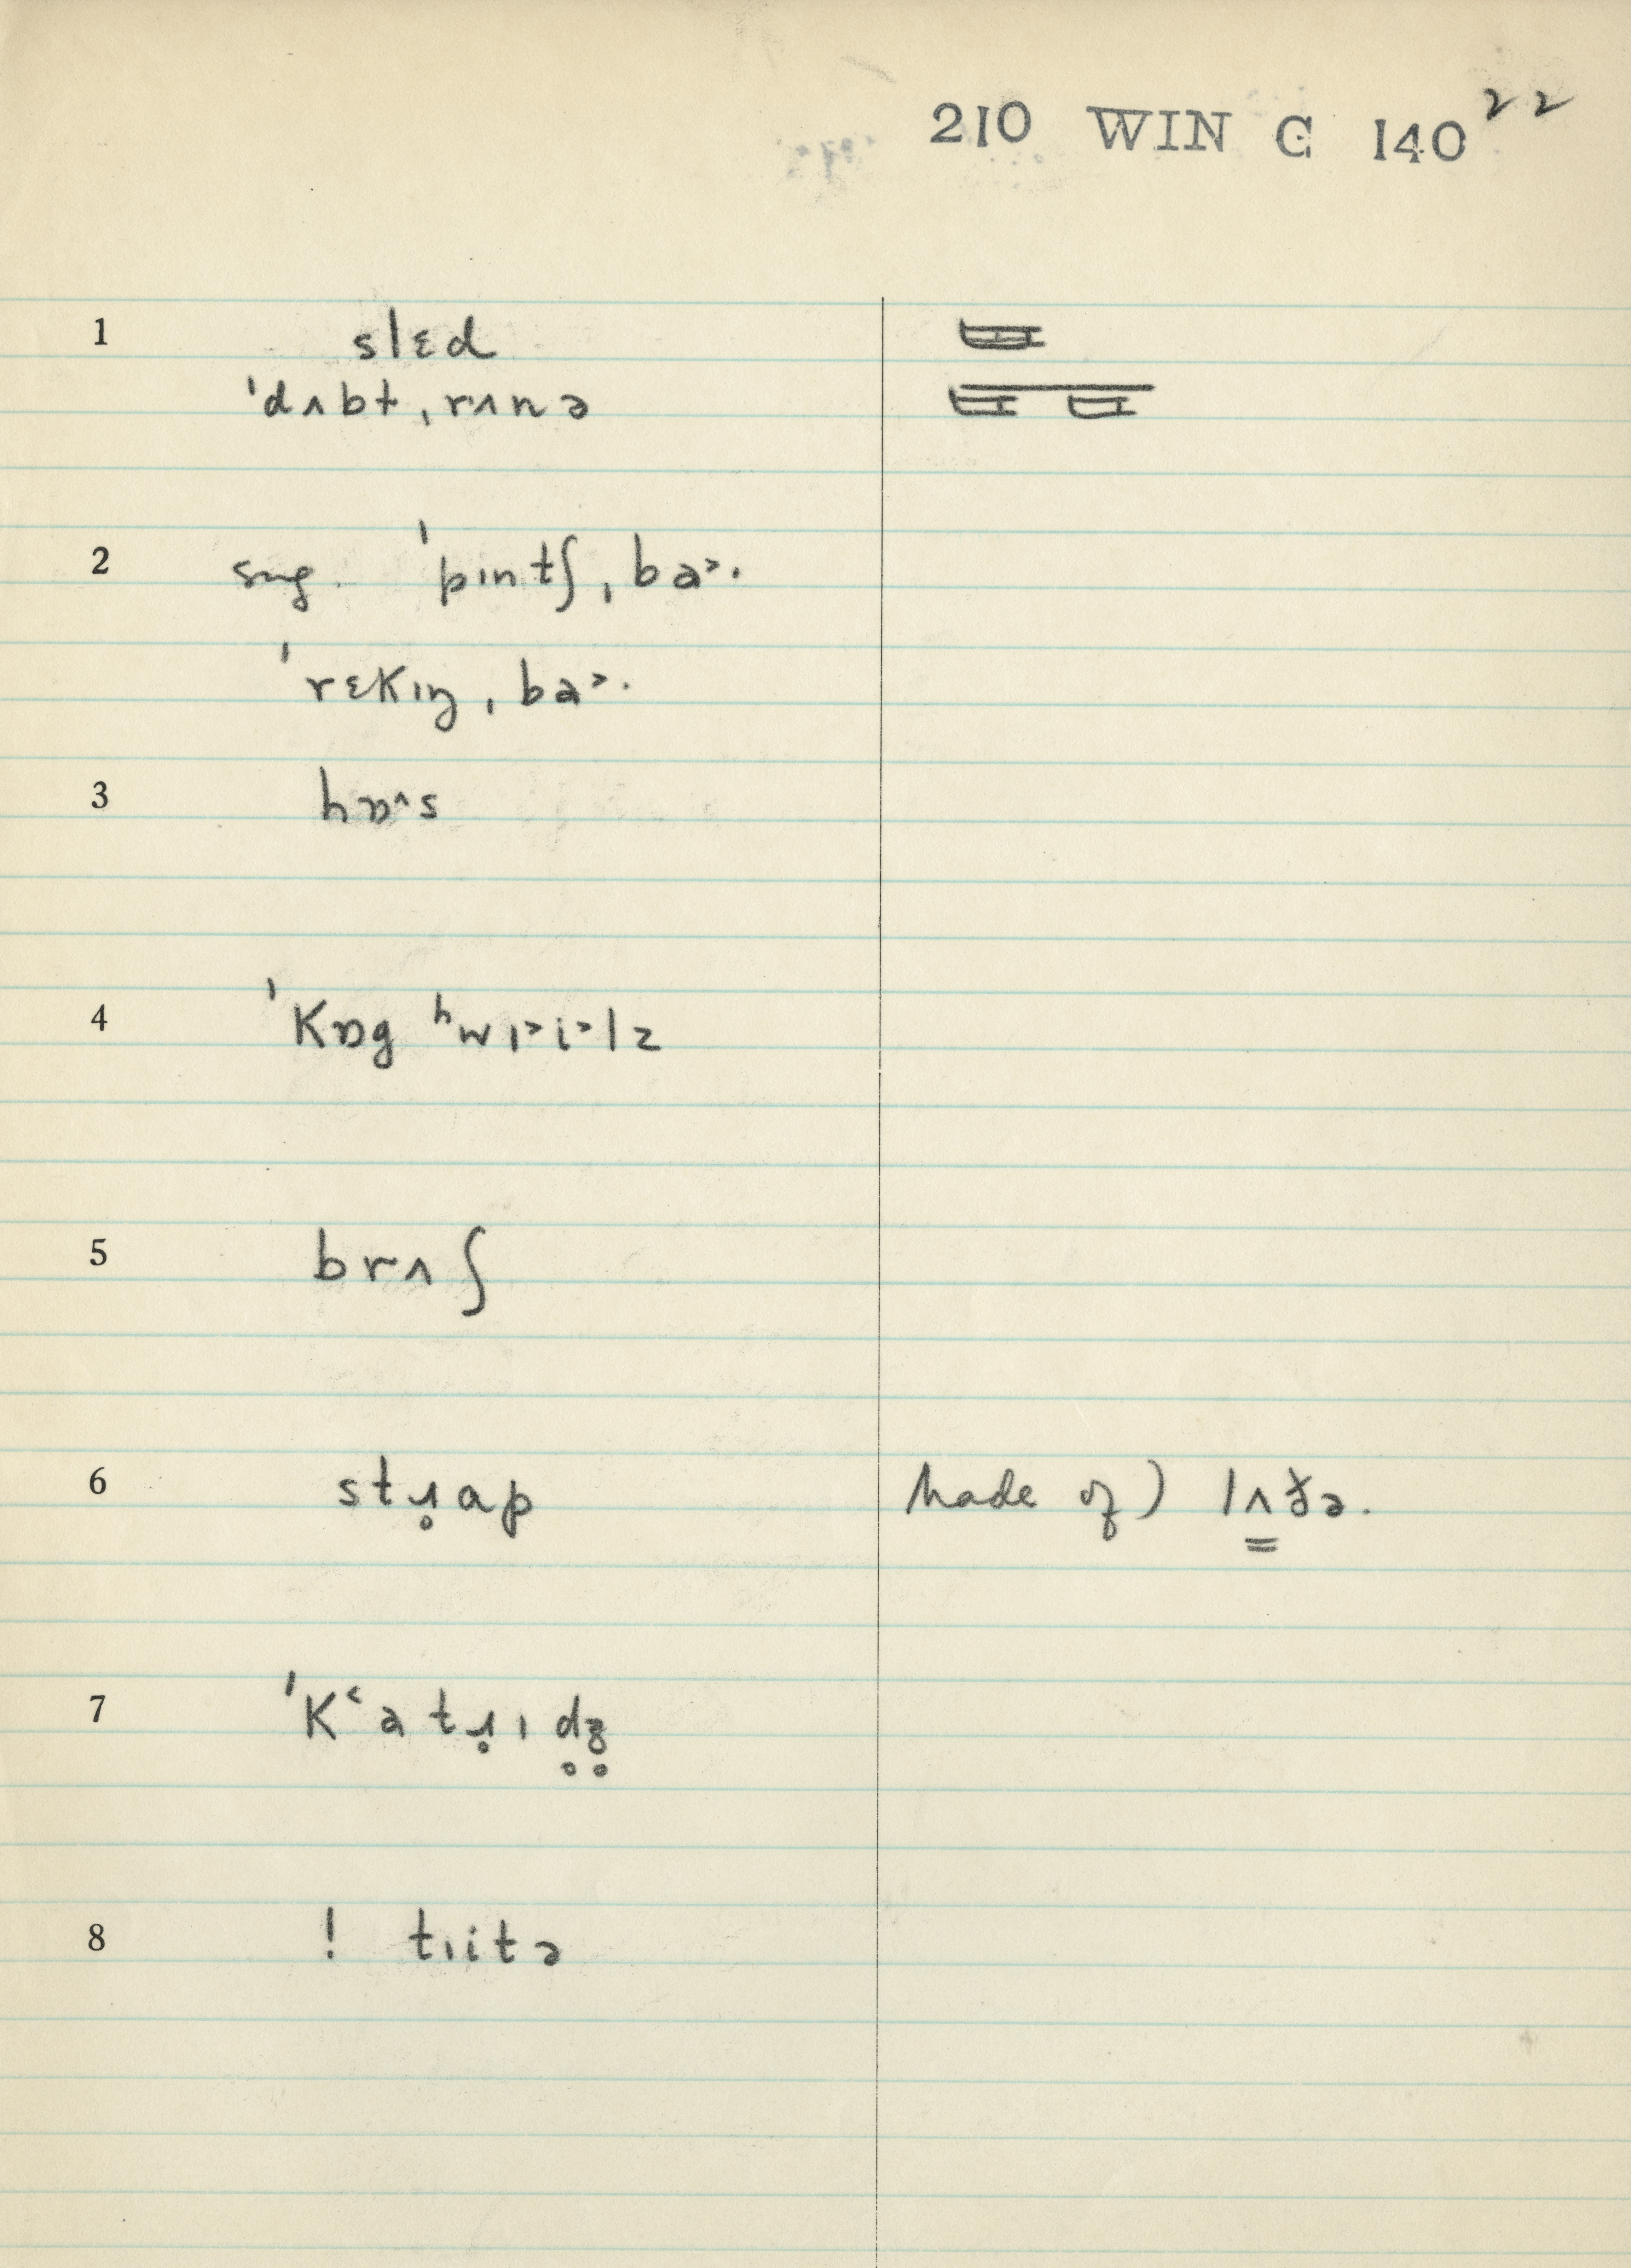 210 WIN C 140 22
1 slɛd
ˈdʌbtˌrʌnə
2 sug. ˈpɪntʃˌba˃·
ˈrɛkɪŋˌba˃·
3 hɒ^s
4 ˈkɒg ʰwɪ˃i˃lz
5 brʌʃ
6 stɹ̥ap Made of) lʌðə.
7 ˈkʻatɹ̥ɪd̥ʒ̥
8 ! tɪitə